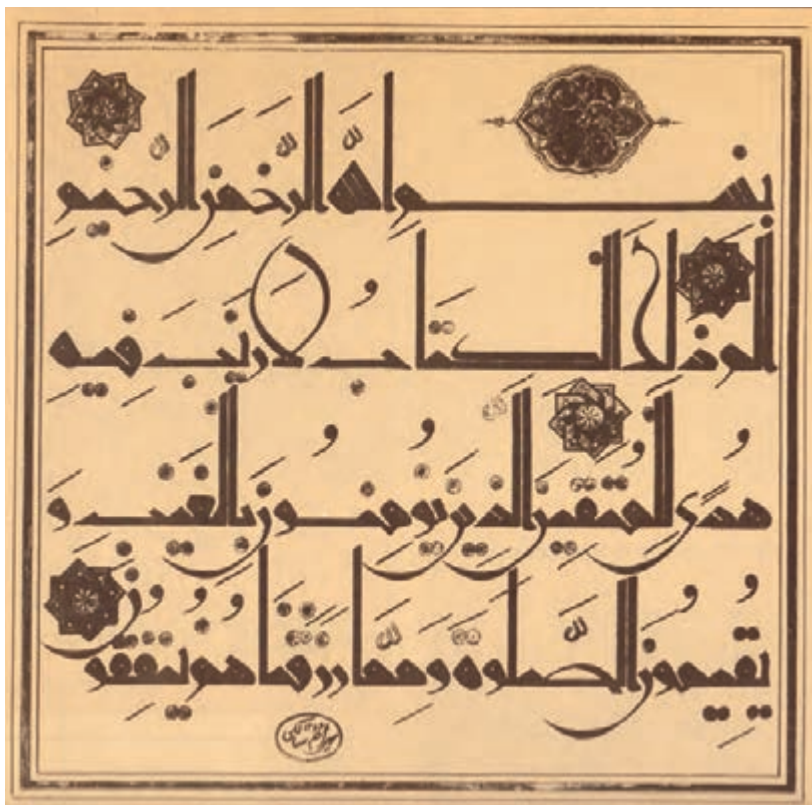 بِسْمِ اللَّهِ الرَّحْمَنِ الرَّحِيمِ
الم ذَلِكَ الْكِتَابُ لَا رَيْبَ فِيهِ
هُدًى لِلْمُتَّقِينَ الَّذِينَ يُؤْمِنُونَ بِالْغَيْبِ وَ
يُقِيمُونَ الصَّلَوةَ وَمِمَّا رَزَقْنَاهُمْ يُنْفِقُونَ